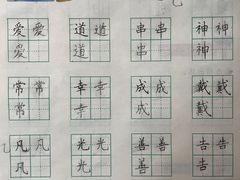 爱 爱 道 道 串 串 神 神
爱 道 串 神
常 常 幸 幸 成 成 戴 戴
常 幸 成 戴
凡 凡 光 光 善 善 告 告
凡 光 善 告